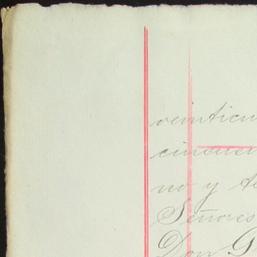 veinticin
cincuen
no y te
Señores
Don G